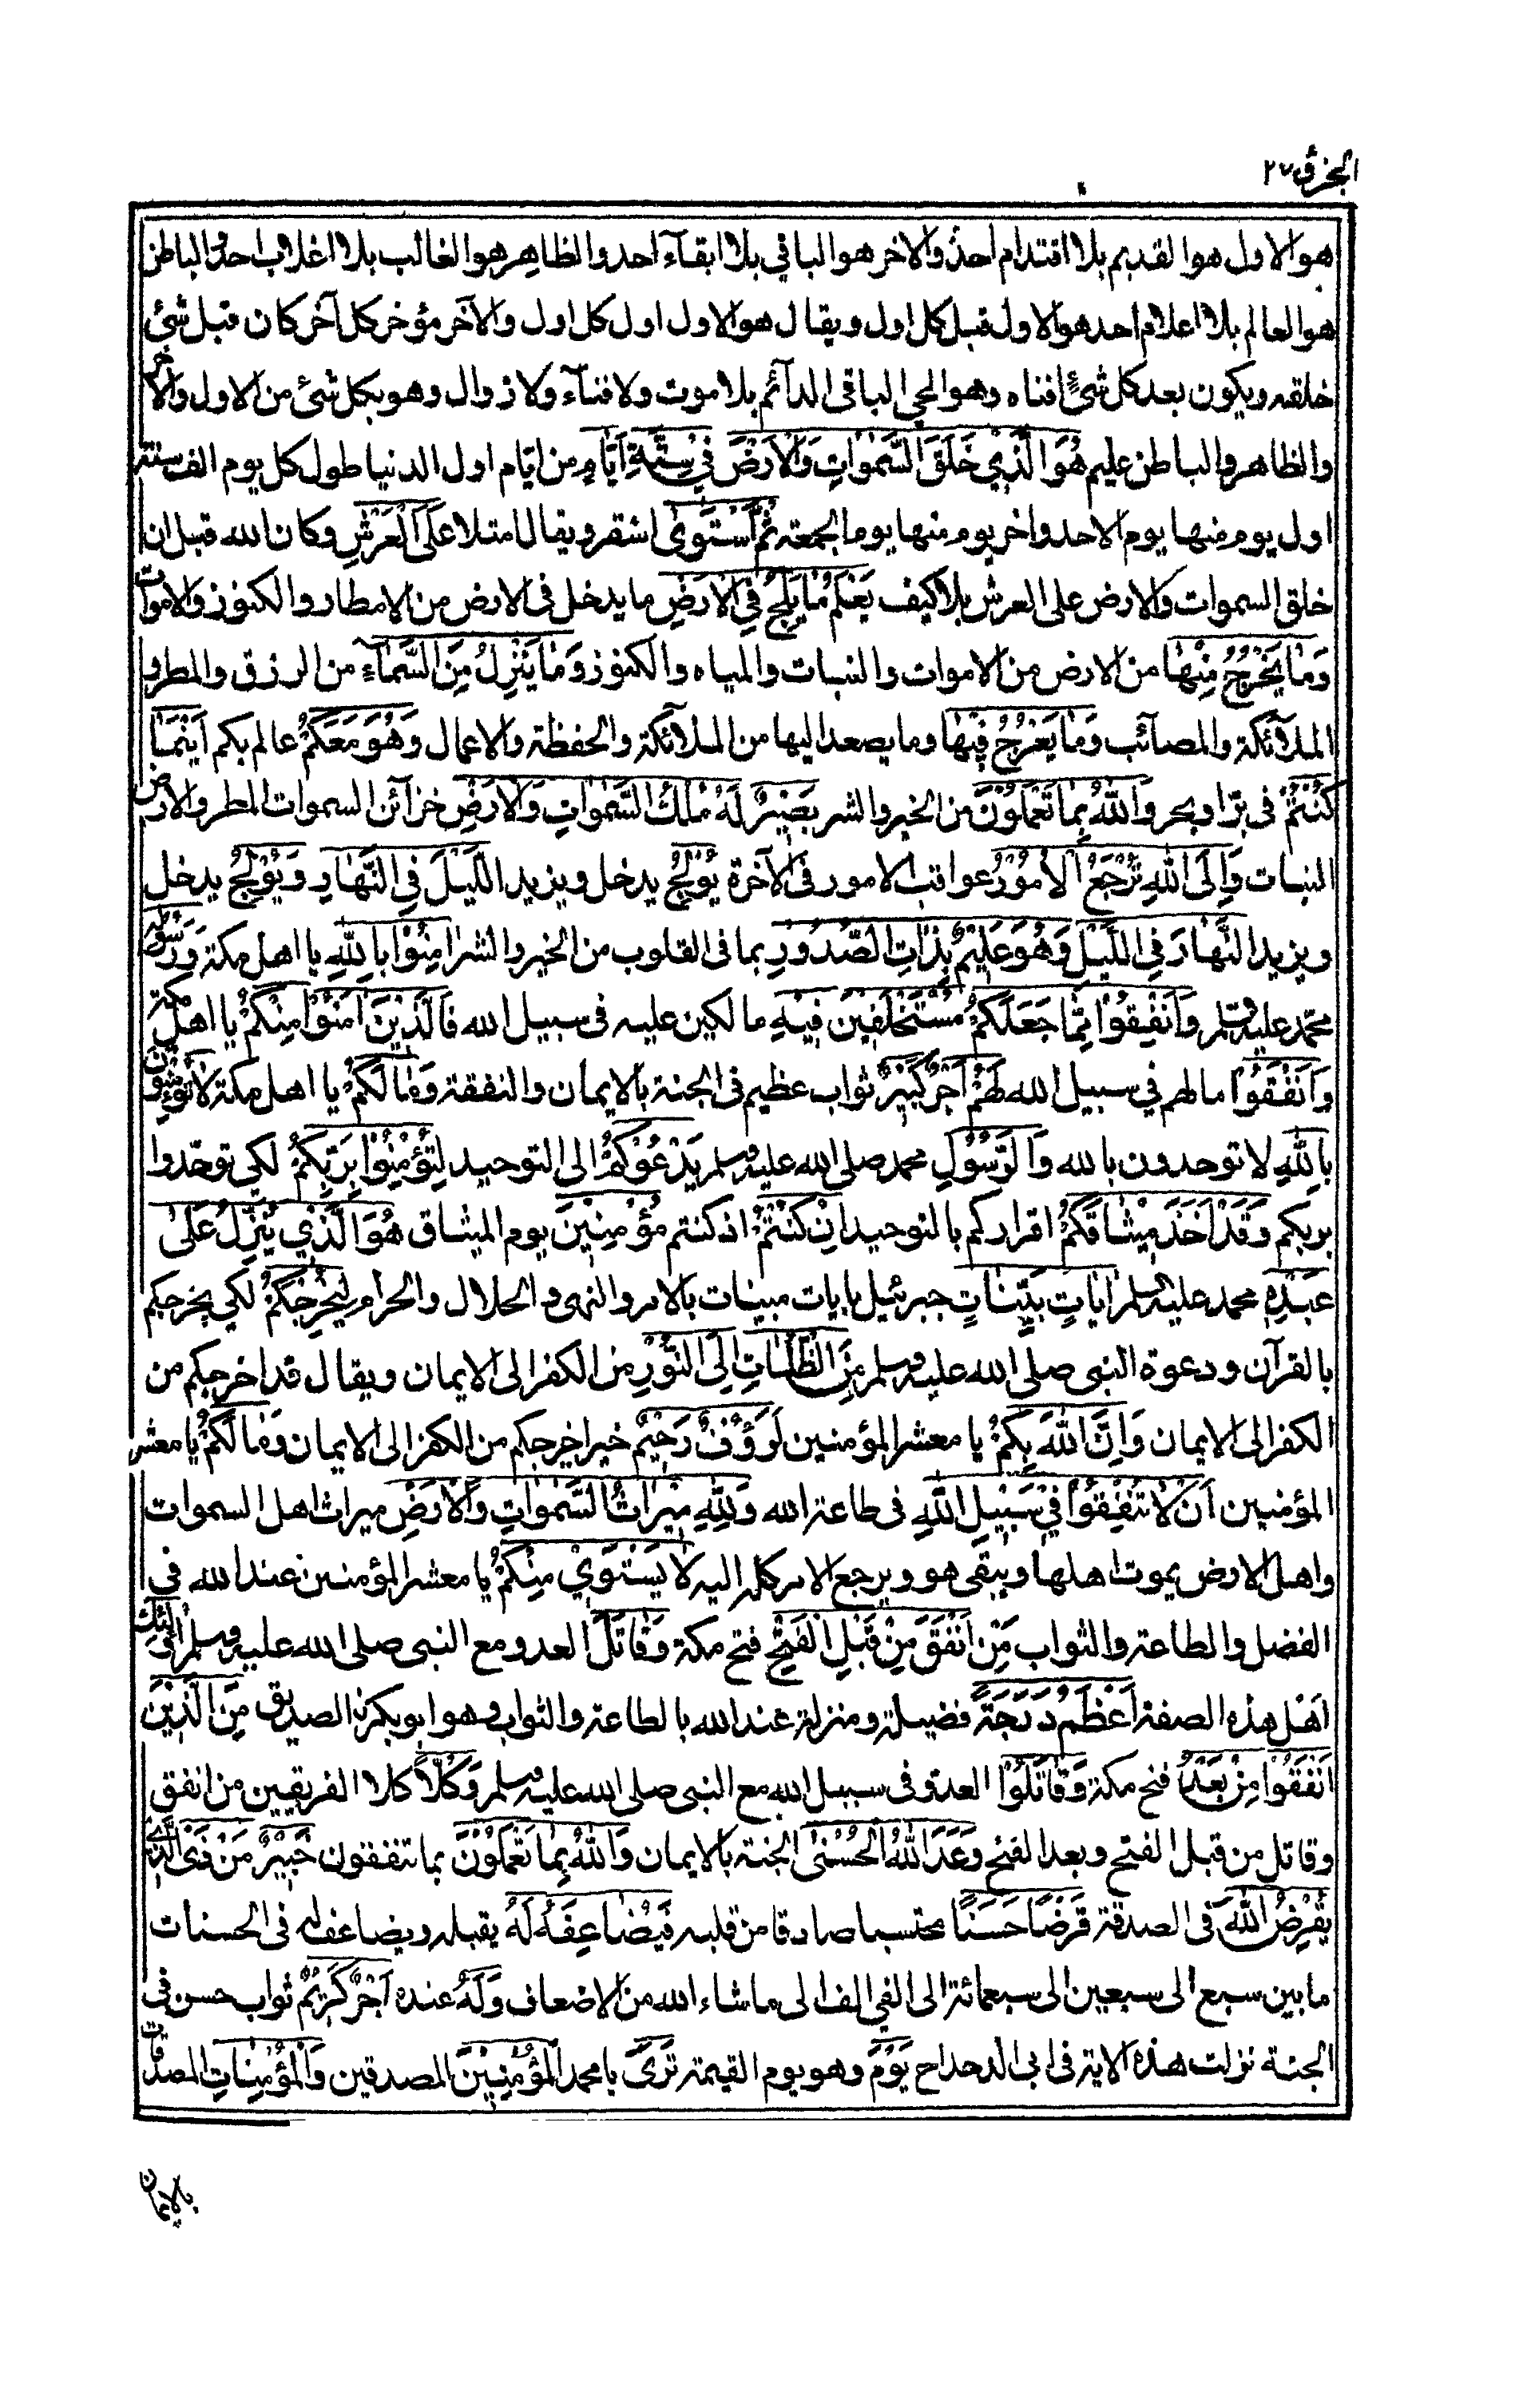 الجزؤ ٢٧
هو الاول هو القديم بلا اقتدام احد والاخر هو الباقي بلا ابقآء احد والظاهر هو الغالب بلا اغلاب احد والباطن
هو العالم بلا اعلام احد هو الاول قبل كل اول ويقال هو الاول اول كل اول والآخر مؤخر كل آخر كان قبل شئ
خلقه ويكون بعد كل شئ افناه وهو الحي الباقى الدآئم بلا موت ولا فنآء ولا زوال وهو بكل شئ من الاول والاخر
والظاهر والباطن عليم هُوَ الَّذِي خَلَقَ السَّمٰوَاتِ وَالْاَرْضَ فِي سِتَّةِ اَيَّامٍ من ايّام اول الدنيا طول كل يوم الف سنة
اول يوم منها يوم الاحد واخر يوم منها يوم الجمعة ثُمَّ اسْتَوٰى استقر ويقال امتلا عَلَى الْعَرْشِ وكان الله قبل ان
خلق السموات والارض على العرش بلا كيف يَعْلَمُ مَا يَلِجُ فِي الْاَرْضِ ما يدخل فى الارض من الامطار والكنوز والاموات
وَمَا يَخْرُجُ مِنْهَا من الارض من الاموات والنبات والمياه والكنوز وَمَا يَنْزِلُ مِنَ السَّمَآءِ من الرزق والمطر و
الملآئكة والمصآئب وَمَا يَعْرُجُ فِيْهَا وما يصعد اليها من الملآئكة والحفظة والاعمال وَهُوَ مَعَكُمْ عالم بكم اَيْنَمَا
كُنْتُمْ فى برّ او بحر وَاللّٰهُ بِمَا تَعْمَلُوْنَ من الخير والشر بَصِيْرٌ لَهُ مُلْكُ السَّمٰوَاتِ وَالْاَرْضِ خزآئن السموات المطر والارض
النبات وَاِلَى اللّٰهِ تُرْجَعُ الْاُمُوْرُ عواقب الامور فى الآخرة يُوْلِجُ يدخل ويزيد اللَّيْلَ فِي النَّهَارِ وَيُوْلِجُ يدخل
ويزيد النَّهَارَ فِي اللَّيْلِ وَهُوَ عَلِيْمٌ بِذَاتِ الصُّدُوْرِ بما فى القلوب من الخير والشر اٰمِنُوْا بِاللّٰهِ يا اهل مكة وَرَسُوْلِهِ
محمّد عليه وسلم وَاَنْفِقُوْا مِمَّا جَعَلَكُمْ مُسْتَخْلَفِيْنَ فِيْهِ مالكين عليه فى سبيل الله فَالَّذِيْنَ اٰمَنُوْا مِنْكُمْ يا اهل مكة
وَاَنْفَقُوْا مالهم في سبيل الله لَهُمْ اَجْرٌ كَبِيْرٌ ثواب عظيم فى الجنة بالايمان والنفقة وَمَا لَكُمْ يا اهل مكة لَا تُؤْمِنُوْنَ
بِاللّٰهِ لا توحدون بالله وَالرَّسُوْلِ محمد صلى الله عليه وسلم يَدْعُوْكُمْ الى التوحيد لِتُؤْمِنُوْا بِرَبِّكُمْ لكي توحّدوا
بربكم وَقَدْ اَخَذَ مِيْثَاقَكُمْ اقراركم بالتوحيد اِنْ كُنْتُمْ اذ كنتم مُؤْمِنِيْنَ يوم الميثاق هُوَ الَّذِي يُنَزِّلُ عَلٰى
عَبْدِهِ محمد عليه السلم اٰيَاتٍ بَيِّنَاتٍ جبرئيل بايات مبينات بالامر والنهى والحلال والحرام لِيُخْرِجَكُمْ لكي يخرجكم
بالقرآن ودعوة النبى صلى الله عليه وسلم مِنَ الظُّلُمَاتِ اِلَى النُّوْرِ من الكفر الى الايمان ويقال قد اخرجكم من
الكفر الى الايمان وَاِنَّ اللّٰهَ بِكُمْ يا معشر المؤمنين لَرَؤُفٌ رَحِيْمٌ خير اخرجكم من الكفر الى الايمان وَمَا لَكُمْ يا معشر
المؤمنين اَنْ لَا تُنْفِقُوْا فِيْ سَبِيْلِ اللّٰهِ فى طاعة الله وَلِلّٰهِ مِيْرَاثُ السَّمٰوَاتِ وَالْاَرْضِ ميراث اهل السموات
واهل الارض يموت اهلها ويبقى هو ويرجع الامر كله اليه لَا يَسْتَوِيْ مِنْكُمْ يا معشر المؤمنين عند الله في
الفضل والطاعة والثواب مَّنْ اَنْفَقَ مِنْ قَبْلِ الْفَتْحِ فتح مكة وَقَاتَلَ العدو مع النبى صلى الله عليه وسلم اُولٰئِكَ
اهل هذه الصفة اَعْظَمُ دَرَجَةً فضيلة ومنزلة عند الله بالطاعة والثواب وهو ابو بكر الصديق مِنَ الَّذِيْنَ
اَنْفَقُوْا مِنْ بَعْدُ فتح مكة وَقَاتَلُوْا العدو فى سبيل الله مع النبى صلى الله عليه وسلم وَكُلًّا كلا الفريقين من انفق
وقاتل من قبل الفتح وبعد الفتح وَعَدَ اللّٰهُ الْحُسْنٰى الجنة بالايمان وَاللّٰهُ بِمَا تَعْمَلُوْنَ بما تنفقون خَبِيْرٌ مَنْ ذَى الَّذِيْ
يُقْرِضُ اللّٰهَ فى الصدقة قَرْضًا حَسَنًا محتسبا صادقا من قلبه فَيُضَاعِفَهُ لَهُ يقبله ويضاعف له فى الحسنات
ما بين سبع الى سبعين الى سبعمائة الى الفي الف الى ما شاء الله من الاضعاف وَلَهُ عنده اَجْرٌ كَرِيْمٌ ثواب حسن فى
الجنة نزلت هذه الاية فى ابى الدحداح يَوْمَ وهو يوم القيمة تَرَى يا محمد الْمُؤْمِنِيْنَ المصدقين وَالْمُؤْمِنَاتِ المصدقات
بالايمان